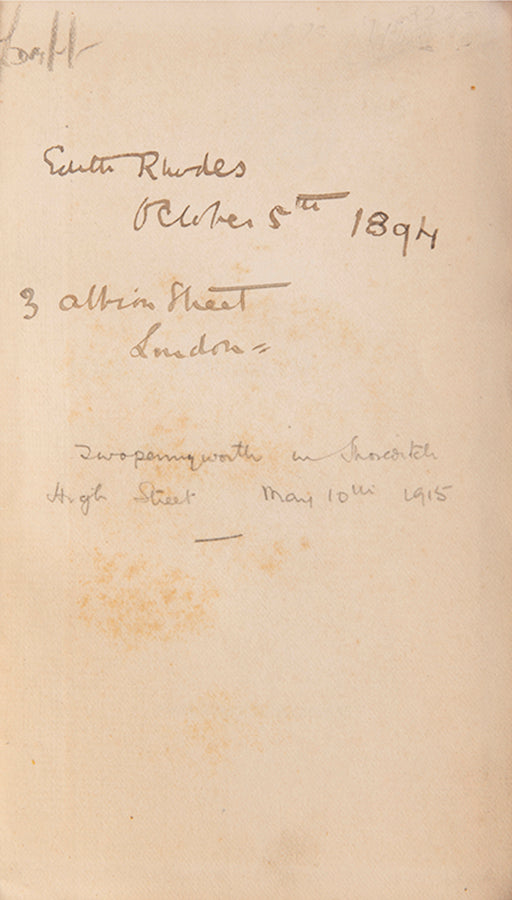 Edith Rhodes
October 5th 1894
3 Albion Street
London =
Twopennyworth in Shoreditch
High Street May 10th 1915